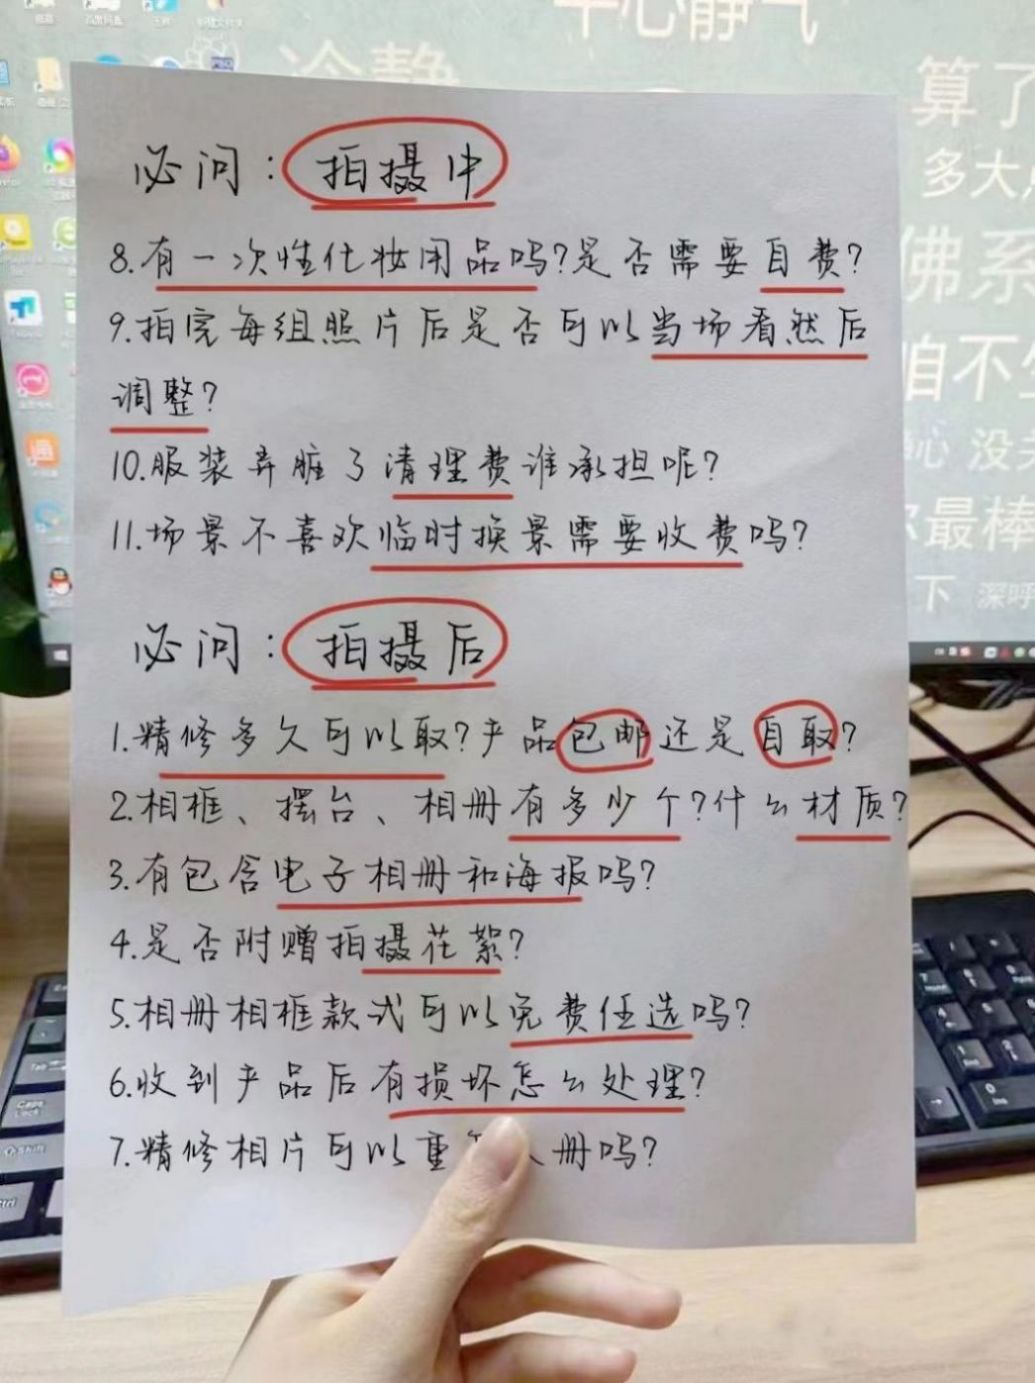 平心静气
冷静
算了
多大
佛系
怕不
没
最棒
下 深呼
必问：拍摄中
8.有一次性化妆用品吗？是否需要自费？
9.拍完每组照片后是否可以当场看然后
调整？
10.服装弄脏了清理费谁承担呢？
11.场景不喜欢临时换景需要收费吗？
必问：拍摄后
1.精修多久可以取？产品包邮还是自取？
2.相框、摆台、相册有多少个？什么材质？
3.有包含电子相册和海报吗？
4.是否附赠拍摄花絮？
5.相册相框款式可以免费任选吗？
6.收到产品后有损坏怎么处理？
7.精修相片可以重 册吗？